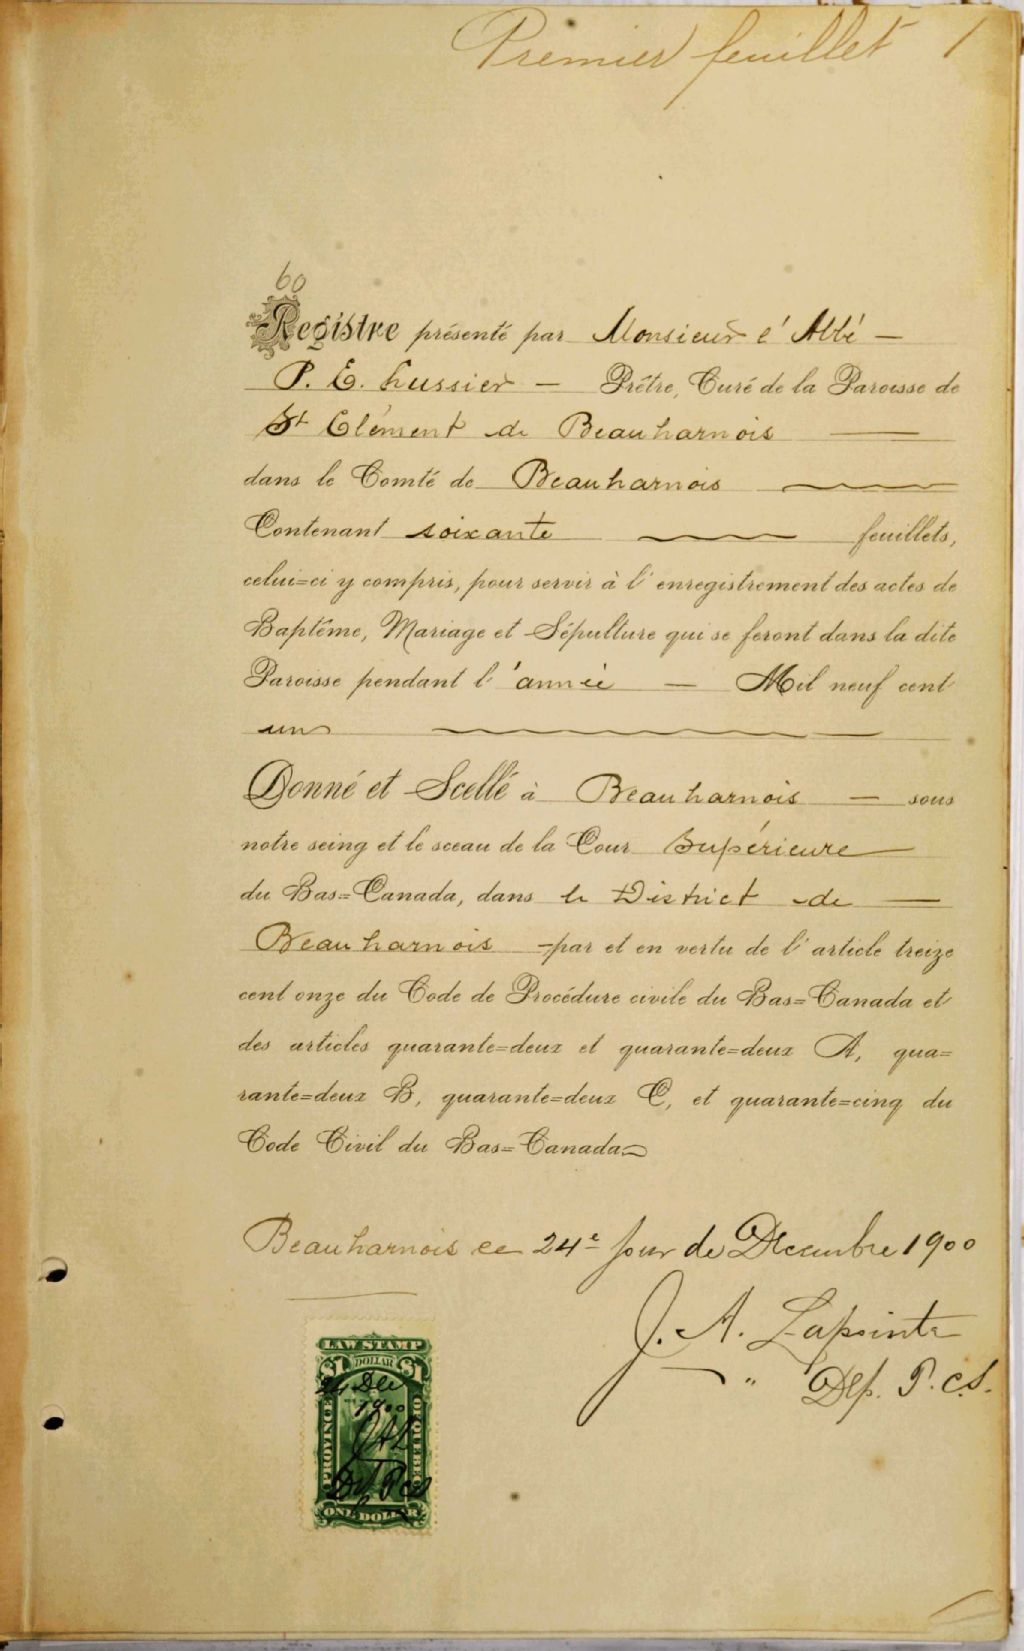 Premier feuillet 1
60
Registre présenté par Monsieur l'Abbé —
P. E. Lussier — Prêtre, Curé de la Paroisse de
St Clément de Beauharnois —
dans le Comté de Beauharnois
Contenant soixante feuillets,
celui=ci y compris, pour servir à l'enregistrement des actes de
Baptême, Mariage et Sépulture qui se feront dans la dite
Paroisse pendant l'année — Mil neuf cent
un
Donné et Scellé à Beauharnois — sous
notre seing et le sceau de la Cour Supérieure
du Bas=Canada, dans le District de —
Beauharnois - par et en vertu de l'article treize
cent onze du Code de Procédure civile du Bas=Canada et
des articles quarante=deux et quarante=deux A, qua=
rante=deux B, quarante=deux C, et quarante=cinq du
Code Civil du Bas=Canada
Beauharnois ce 24e Jour de Décembre 1900
J. A. Lapointe
" Dep. P.C.S.
LAW STAMP
$1 DOLLAR $1
24 Dec
1900
JAL
Dep PCS
PROVINCE
OF QUEBEC
ONE DOLLAR